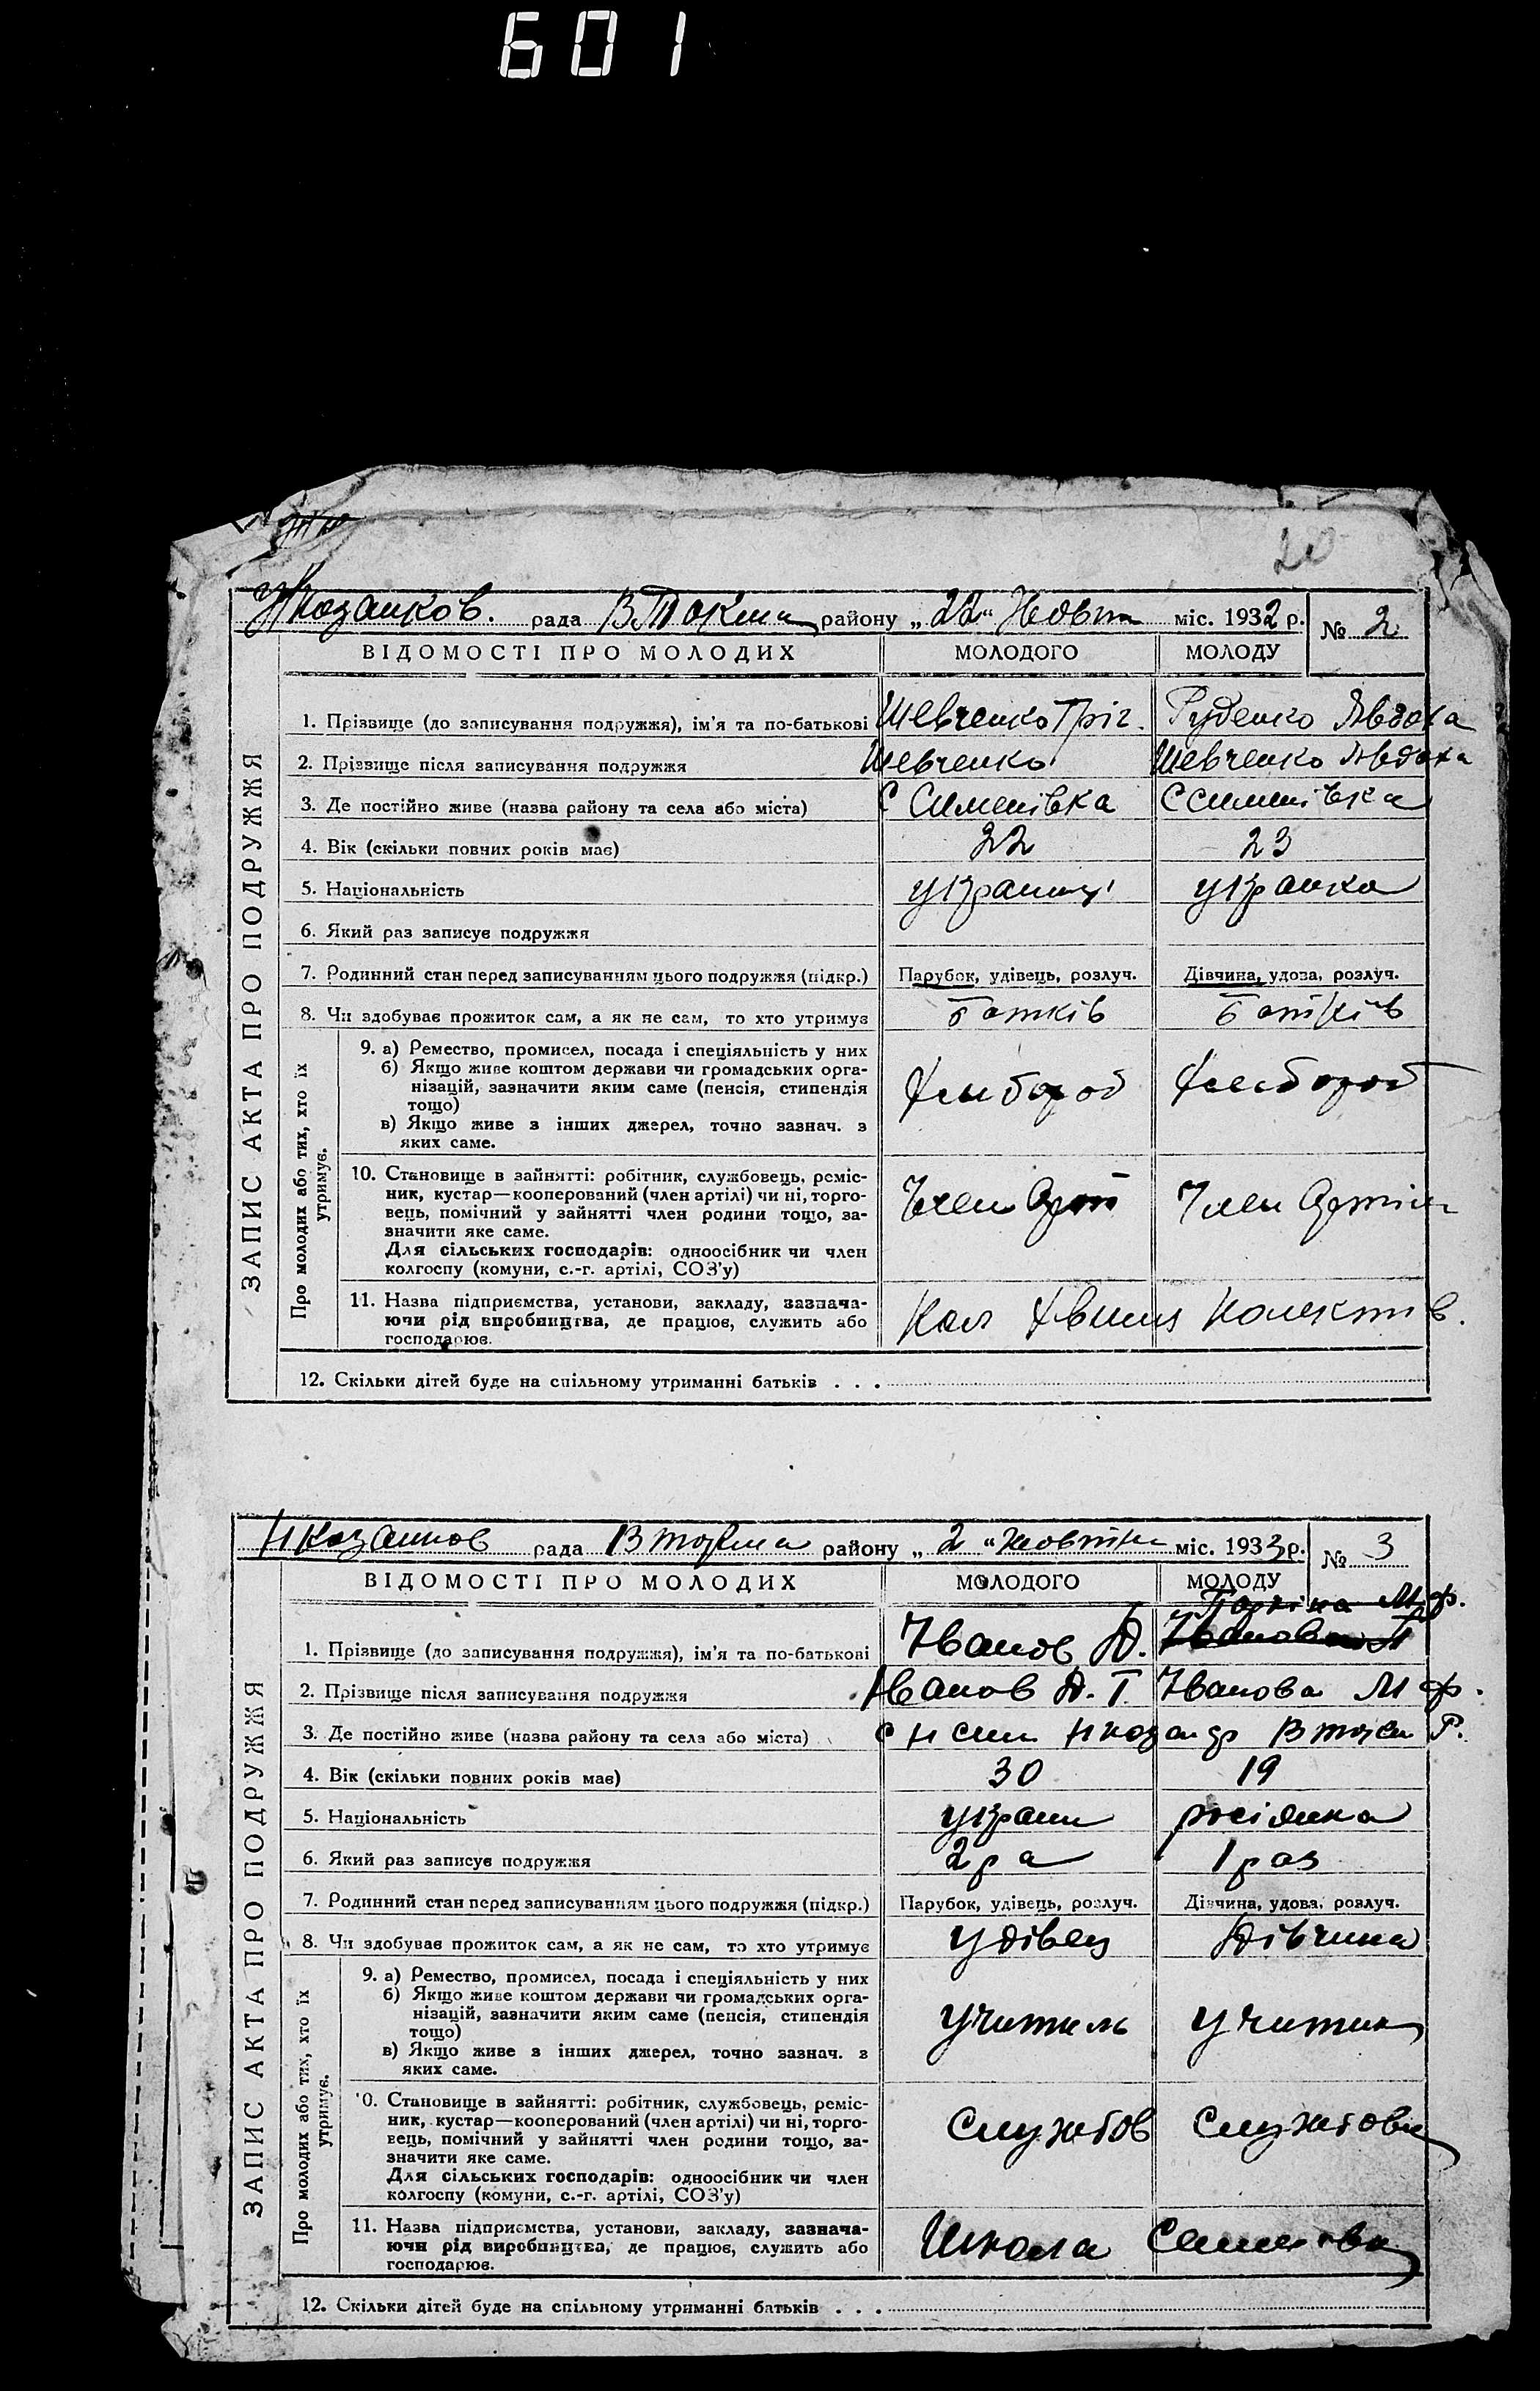 601
20
рада В.Токма району „22“ Жовт міс. 1932 р. № 2
ВІДОМОСТІ ПРО МОЛОДИХ МОЛОДОГО МОЛОДУ
ЗАПИС АКТА ПРО ПОДРУЖЖЯ
1. Прізвище (до записування подружжя), ім'я та по-батькові Шевченко Гріг. Руденко Явдоха
2. Прізвище після записування подружжя Шевченко Шевченко Явдоха
3. Де постійно живе (назва району та села або міста) С Сименівка С
4. Вік (скільки повних років має) 22 23
5. Національність украинц украинка
6. Який раз записує подружжя
7. Родинний стан перед записуванням цього подружжя (підкр.) Парубок, удівець, розлуч. Дівчина, удова, розлуч.
8. Чи здобуває прожиток сам, а як не сам, то хто утримує батків батків
Про молодих або тих, хто їх утримує.
9. а) Ремество, промисел, посада і спеціяльність у них
б) Якщо живе коштом держави чи громадських орга-
нізацій, зазначити яким саме (пенсія, стипендія
тощо)
в) Якщо живе з інших джерел, точно зазнач. з
яких саме.
Хлібороб Хлібороб
10. Становище в зайнятті: робітник, службовець, реміс-
ник, кустар—кооперований (член артілі) чи ні, торго-
вець, помічний у зайнятті член родини тощо, за-
значити яке саме.
Для сільських господарів: одноосібник чи член
колгоспу (комуни, с.-г. артілі, СОЗ'у)
Член Арт Член Артіли
11. Назва підприємства, установи, закладу, зазнача-
ючи рід виробництва, де працює, служить або
господарює.
Кол Колектив.
12. Скільки дітей буде на спільному утриманні батьків . . .
рада В току району „2“ Жовтня міс. 1933 р. № 3
ВІДОМОСТІ ПРО МОЛОДИХ МОЛОДОГО МОЛОДУ
ЗАПИС АКТА ПРО ПОДРУЖЖЯ
М ф.
1. Прізвище (до записування подружжя), ім'я та по-батькові Іванов Д.
2. Прізвище після записування подружжя Іванов Д. Г. Іванова М ф.
3. Де постійно живе (назва району та села або міста) с Н сим В Р.
4. Вік (скільки повних років має) 30 19
5. Національність украин росіянка
6. Який раз записує подружжя 2 ра 1 раз
7. Родинний стан перед записуванням цього подружжя (підкр.) Парубок, удівець, розлуч. Дівчина, удова, розлуч.
8. Чи здобуває прожиток сам, а як не сам, то хто утримує удівец дівчина
Про молодих або тих, хто їх утримує.
9. а) Ремество, промисел, посада і спеціяльність у них
б) Якщо живе коштом держави чи громадських орга-
нізацій, зазначити яким саме (пенсія, стипендія
тощо)
в) Якщо живе з інших джерел, точно зазнач. з
яких саме.
учитель учител
10. Становище в зайнятті: робітник, службовець, реміс-
ник, кустар—кооперований (член артілі) чи ні, торго-
вець, помічний у зайнятті член родини тощо, за-
значити яке саме.
Для сільських господарів: одноосібник чи член
колгоспу (комуни, с.-г. артілі, СОЗ'у)
Службов Службов
11. Назва підприємства, установи, закладу, зазнача-
ючи рід виробництва, де працює, служить або
господарює.
Школа
12. Скільки дітей буде на спільному утриманні батьків . . .